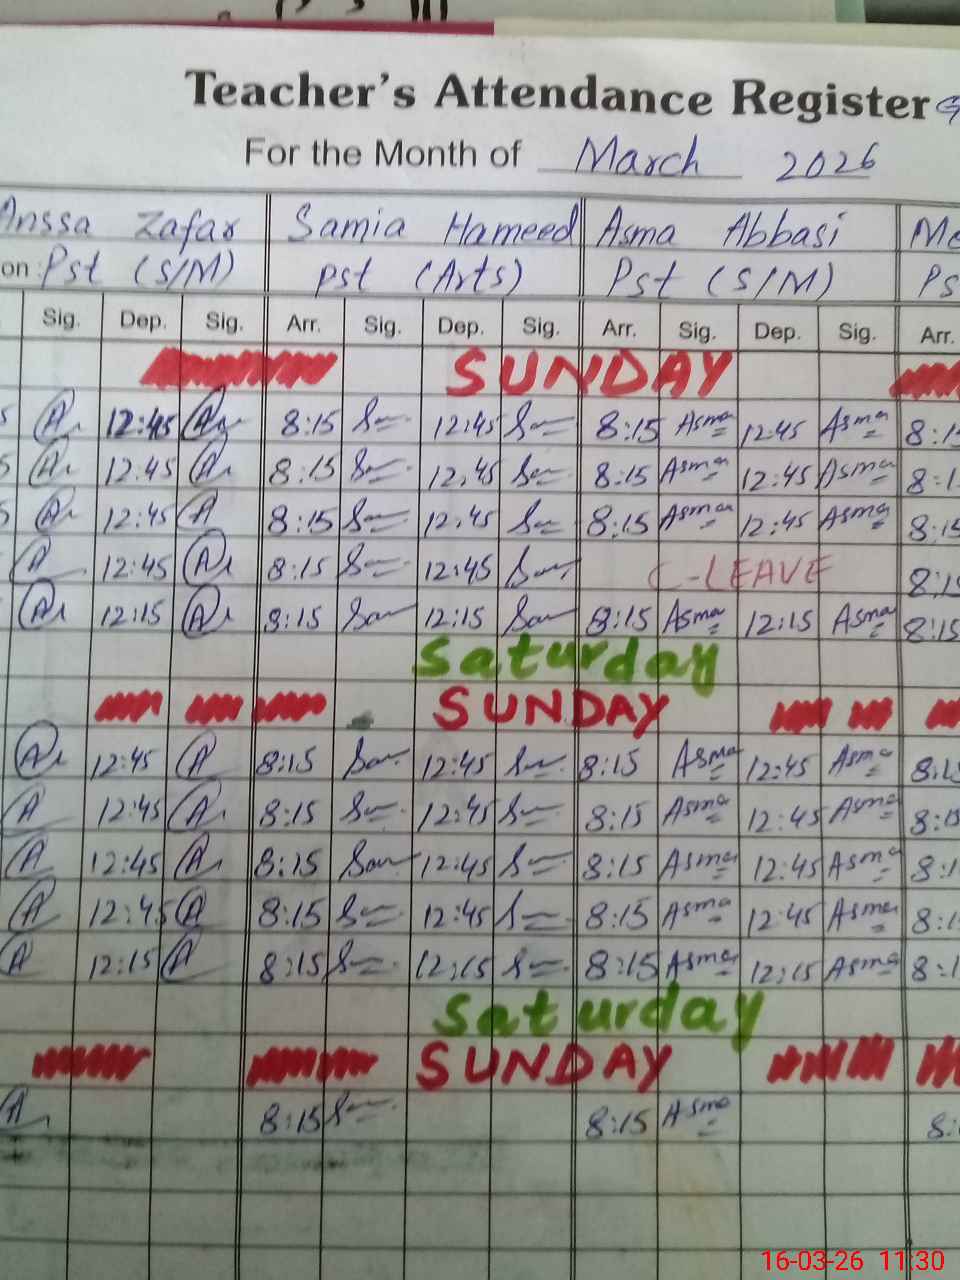 Teacher's Attendance Register
For the Month of March 2026
Anssa Zafar Samia Hameed Asma Abbasi
on: Pst (S/M) Pst (Arts) Pst (S/M)
Sig. Dep. Sig. Arr. Sig. Dep. Sig. Arr. Sig. Dep. Sig. Arr.
SUNDAY
12:45 8:15 12:45 8:15 Asma 12:45 Asma
12:45 8:15 12:45 8:15 Asma 12:45 Asma
12:45 8:15 12:45 8:15 Asma 12:45 Asma 8:15
12:45 8:15 12:45 C-LEAVE 8:15
12:15 8:15 12:15 8:15 Asma 12:15 Asma 8:15
Saturday
SUNDAY
12:45 8:15 12:45 8:15 Asma 12:45 Asma 8:15
12:45 8:15 12:45 8:15 Asma 12:45 Asma 8:15
12:45 8:15 12:45 8:15 Asma 12:45 Asma
12:45 8:15 12:45 8:15 Asma 12:45 Asma
12:15 8:15 12:15 8:15 Asma 12:15 Asma
Saturday
SUNDAY
8:15 8:15 Asma
16-03-26 11:30